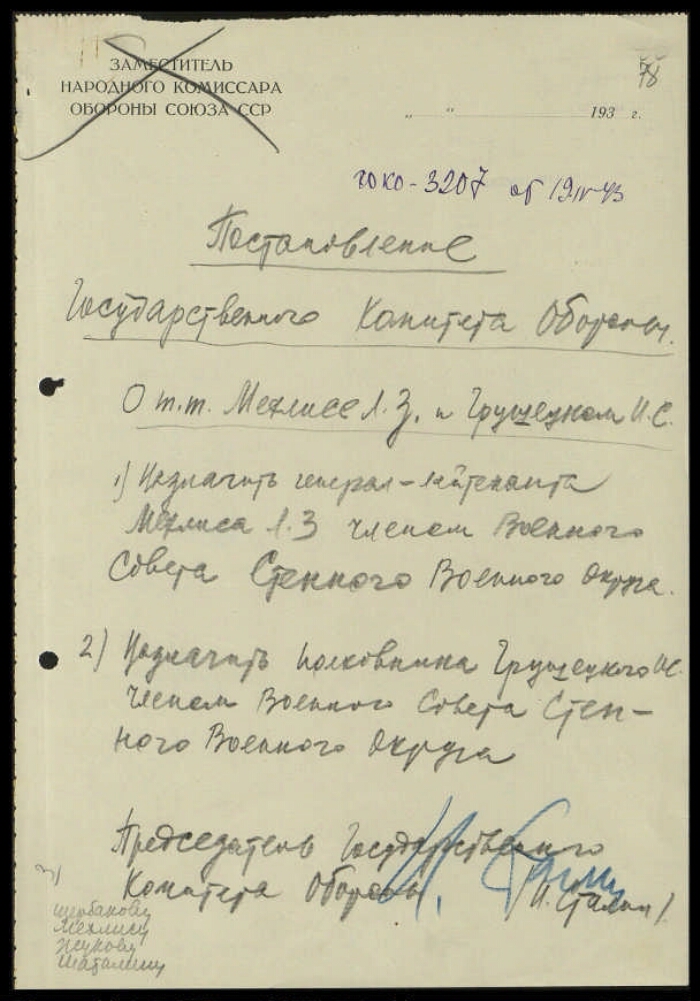 78
ЗАМЕСТИТЕЛЬ
НАРОДНОГО КОМИССАРА
ОБОРОНЫ СОЮЗА ССР
„ “ 193 г.
ГОКО-3207 от 19.IV-43
Постановление
Государственного Комитета Обороны.
О т.т. Мехлисе Л.З. и Грушецком И.С.
1) Назначить генерал-лейтенанта
Мехлиса Л.З членом Военного
Совета Степного Военного Округа.
2) Назначить полковника Грушецкого И.С.
членом Военного Совета Степ-
ного Военного Округа
Председатель Государственного
Комитета Обороны И. Сталин
/И. Сталин/.
Щербакову
Мехлису
Жукову
Шаталину